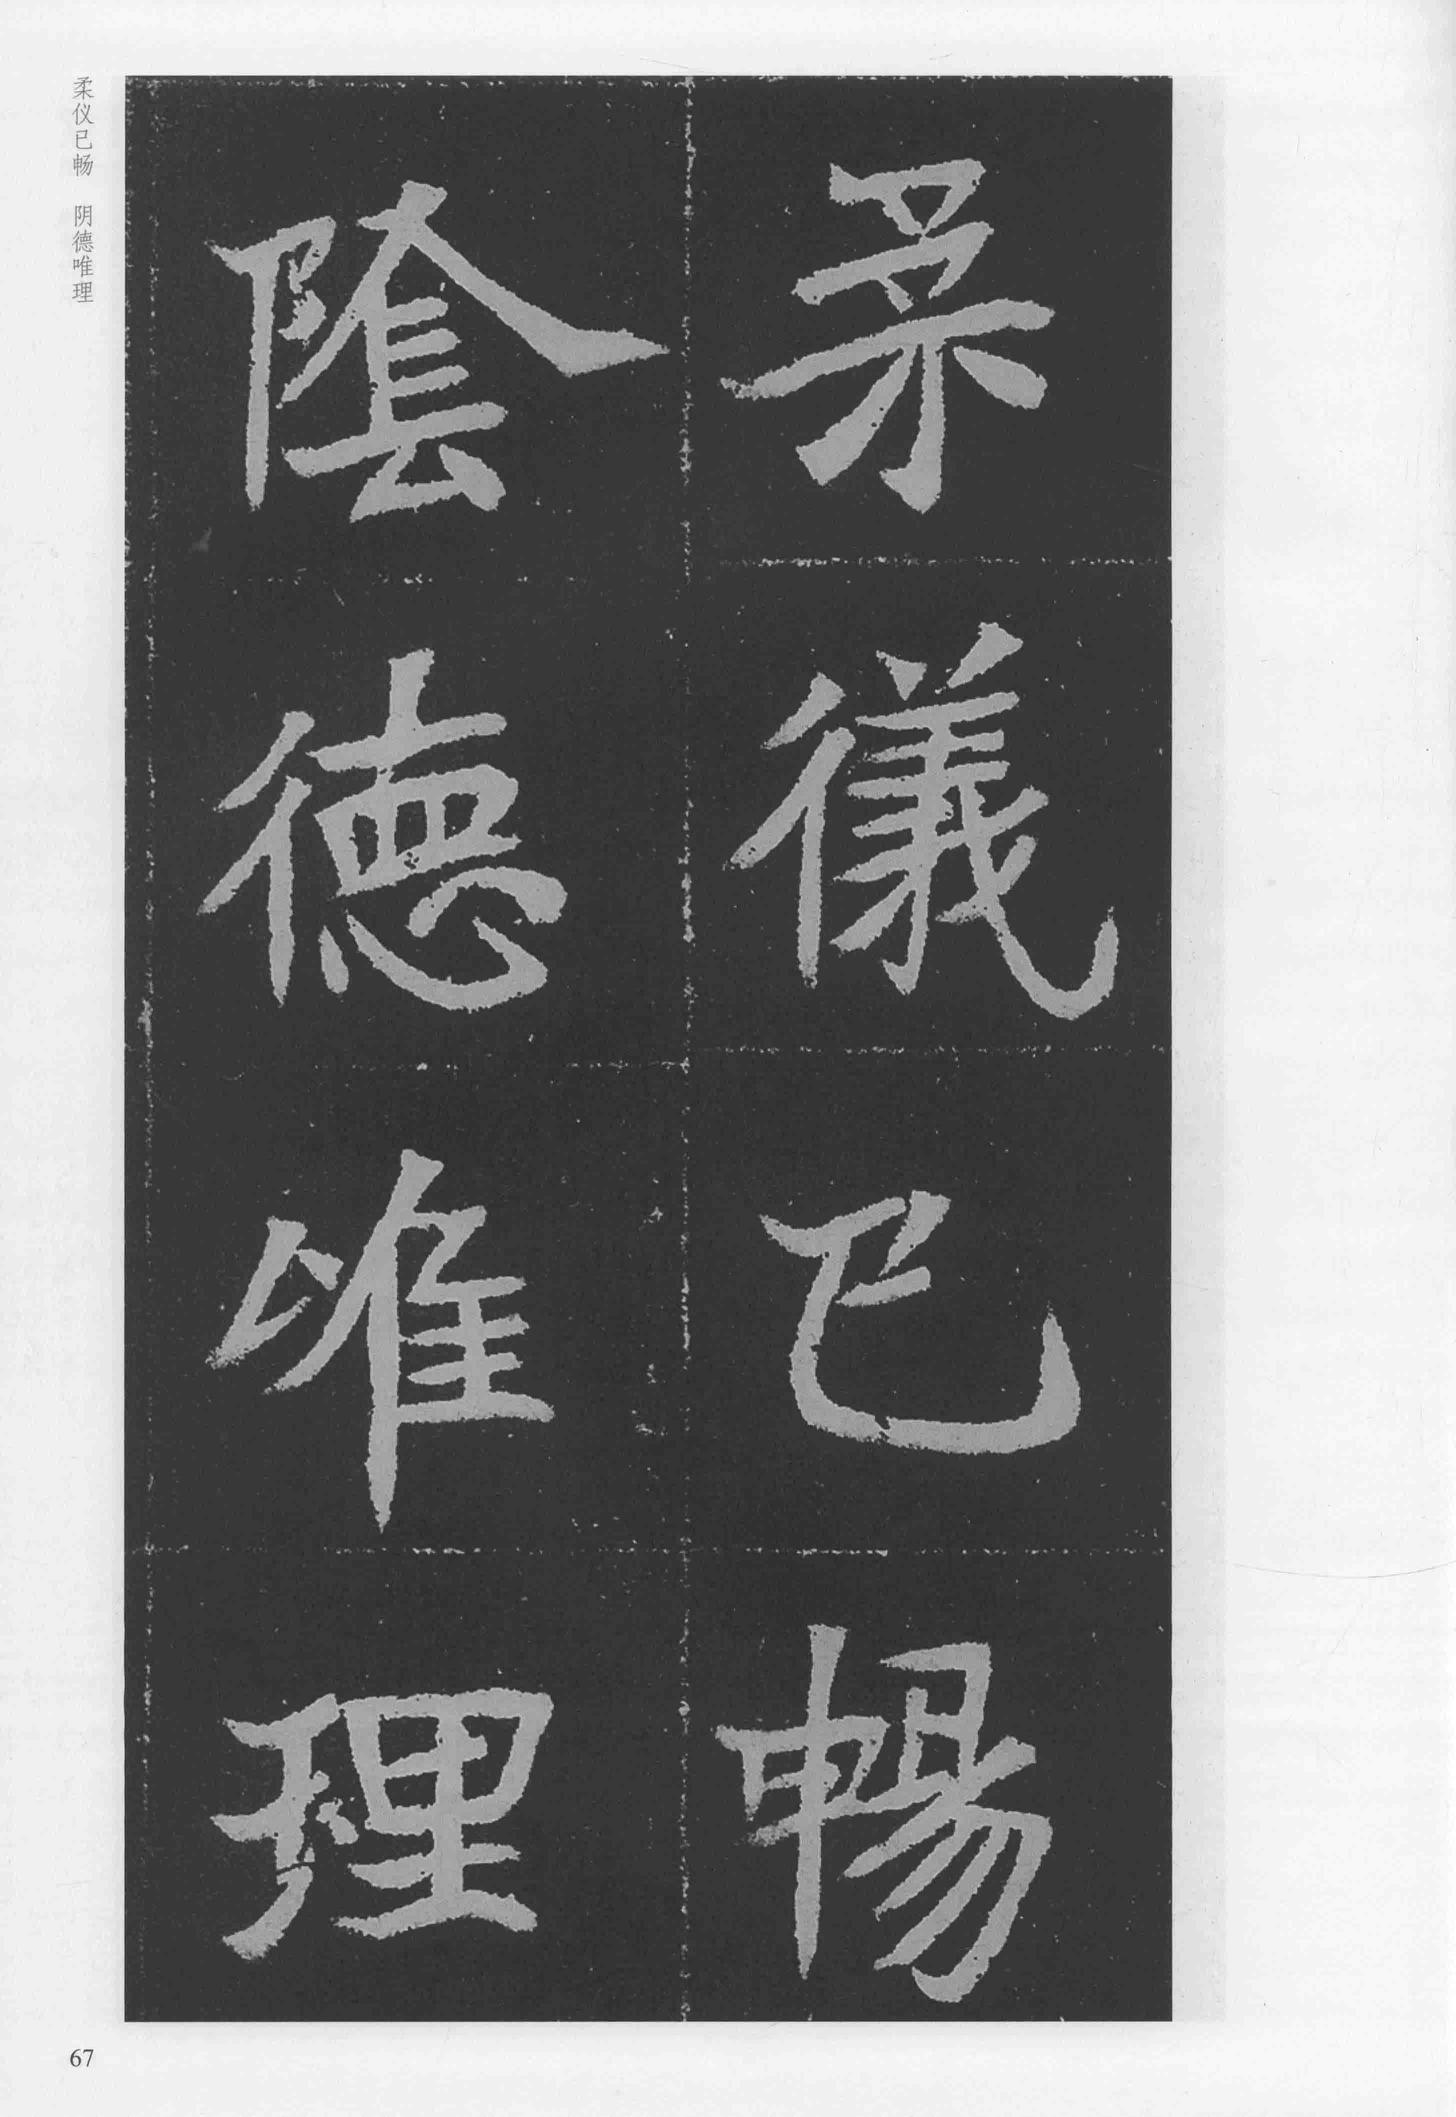 柔儀已暢
陰德唯理
柔仪已畅 阴德唯理
67